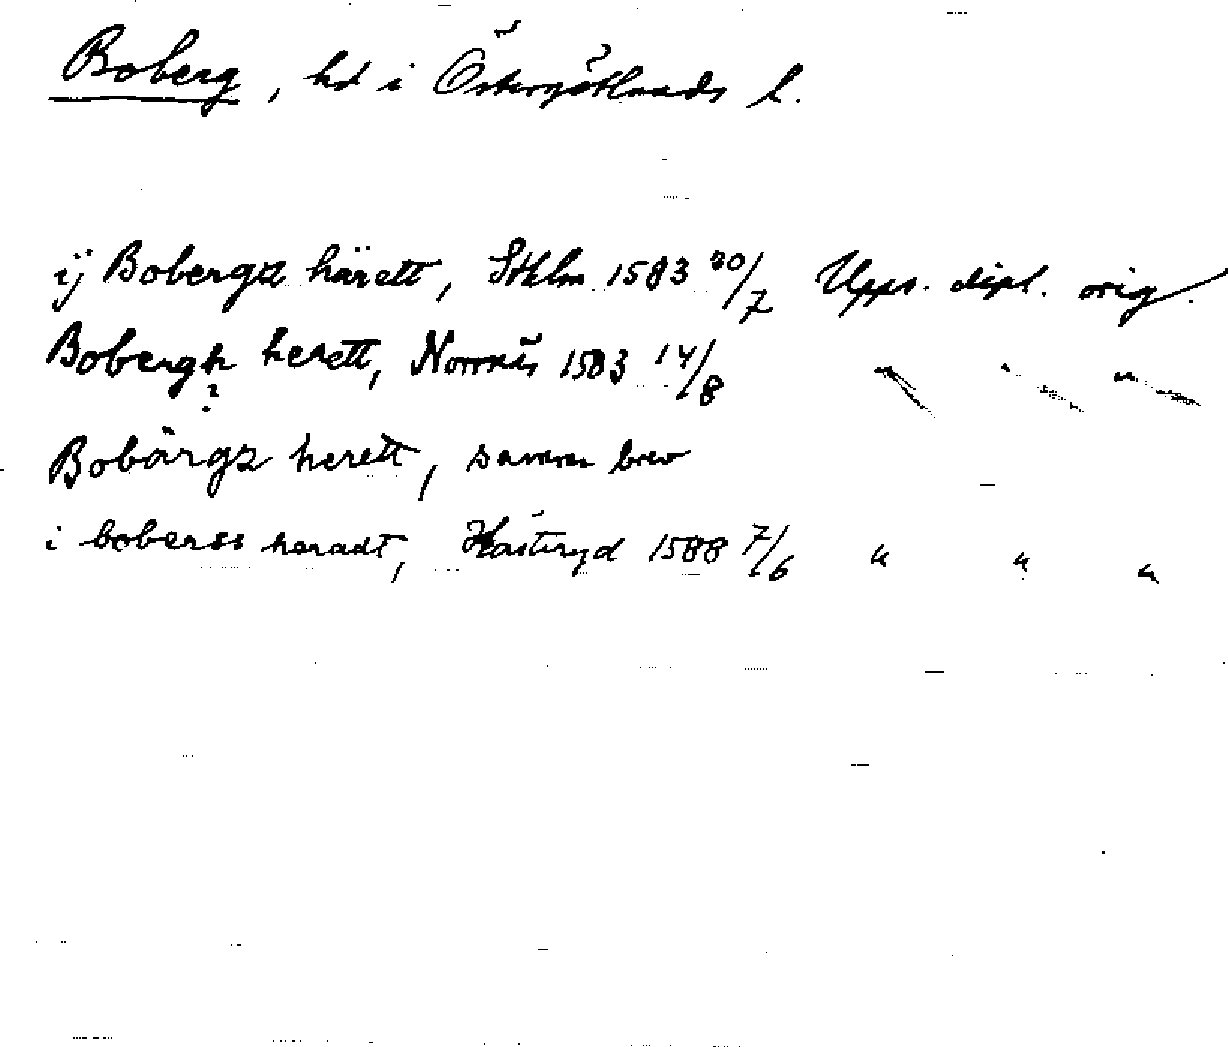 Boberg, hd i Östergötlands l.
ij Bobergz härett, Sthlm 1583 20/7 Upps. dipl. orig.
Bobergh herett, Norrnäs 1583 14/8 " " "
?
Bobärgz herett, samma brev
i boberss haradt, Hästeryd 1588 7/6 " " "